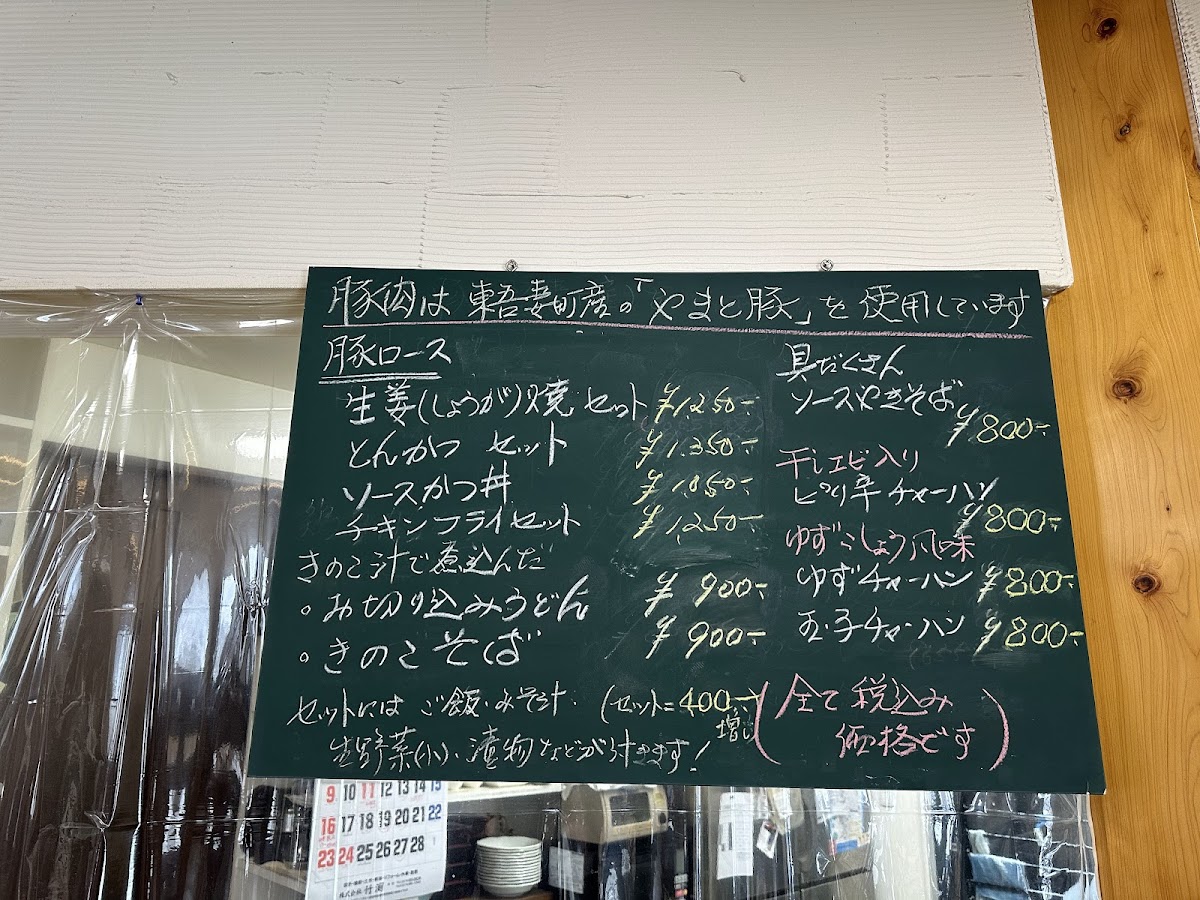 豚肉は東吾妻町産の「やまと豚」を使用しています
豚ロース
生姜(しょうが)焼 セット ¥1,250-
とんかつ セット ¥1,350-
ソースかつ丼 ¥1,050-
チキンフライセット ¥1,250-
きのこ汁で煮込んだ
。お切り込みうどん ¥900-
。きのこそば ¥900-
セットには ご飯、みそ汁、(セット=400-増し
生野菜(小)、漬物などが付きます!
具だくさん
ソースやきそば ¥800-
干しエビ入り
ピリ辛チャーハン ¥800-
ゆずこしょう風味
ゆずチャーハン ¥800-
玉子チャーハン ¥800-
(全て税込み
価格です)
9 10 11 12 13 14 15
16 17 18 19 20 21 22
23 24 25 26 27 28